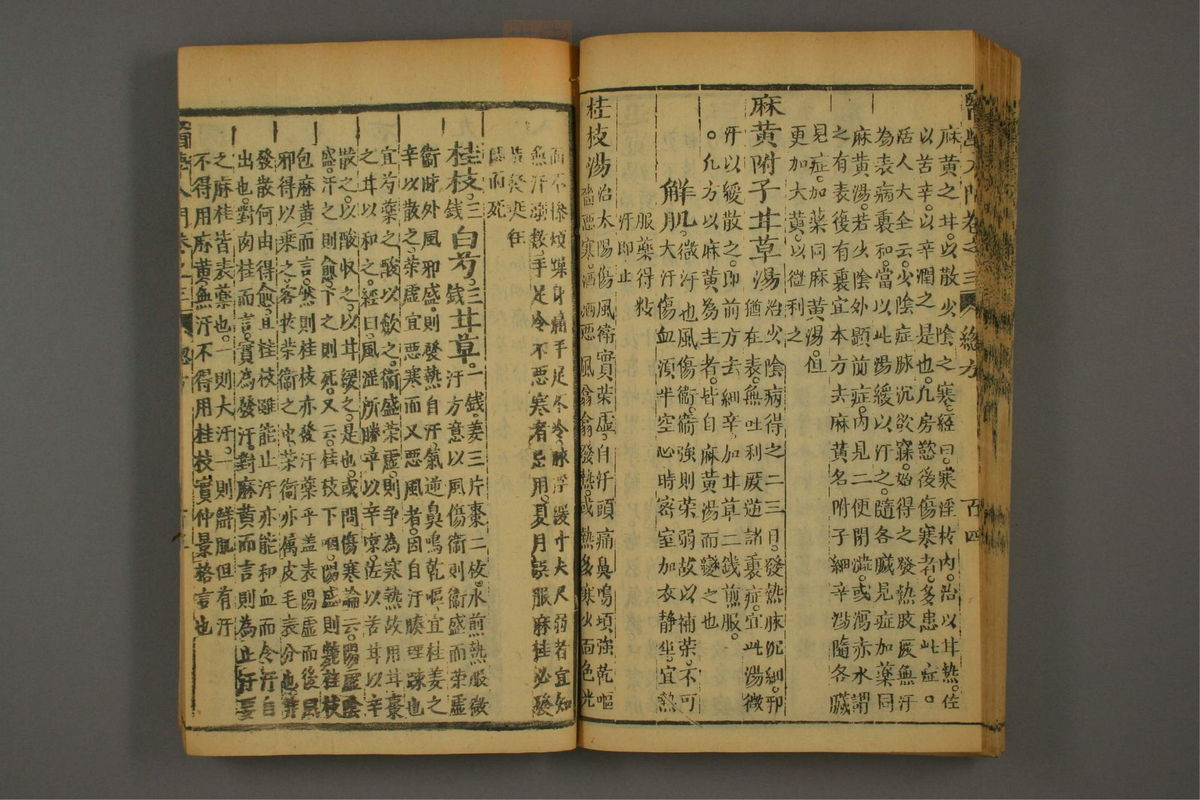 醫學入門卷之三 總方 百四
麻黃之甘以散少陰之寒。經曰。寒淫於內。治以甘熱。佐
以苦辛。以辛潤之是也。凡房慾後傷寒者。多患此症。
活人大全云。少陰症脉沉欲寐。始得之發熱肢厥無汗
為表病裏和。當以此湯緩以汗之。隨各臟見症加藥同
麻黃湯。若少陰外顯前症。內見二便閉澁。或瀉赤水謂
之有表後有裏宜本方去麻黃名附子細辛湯隨各臟
見症。加藥同麻黃湯。但
更加大黃。以微利之
麻黃附子甘草湯
治少陰病得之二三日。發熱脉沉細。邪
猶在表。無吐利厥逆諸裏症。宜此湯微
汗以緩散之。即前方去細辛。加甘草二錢煎服。
。凡方以麻黃為主者。皆自麻黃湯而變之也
解肌。微汗也風傷衛。衛強則榮弱。故以補榮。不可
大汗傷血須半空心時密室加衣靜坐。宜熱
服藥得粘
汗即止
桂枝湯
治太陽傷風衛實榮虛。自汗頭痛鼻鳴項強乾嘔
嗇嗇惡寒。洒洒惡風。翕翕發熱。或熱多寒少面色光
而不慘煩燥身痛手足不冷。脉浮緩寸大尺弱者宜。如
無汗弦數。手足冷不惡寒者忌用。夏月誤服麻桂必發
黃發班狂
悶而死
桂枝。三錢 白芍。三錢 甘草。一錢。姜三片棗二枚。水煎熱服微
汗方意以風傷衛則衛盛而榮虛
衛脉外風邪盛。則發熱自汗。氣逆鼻鳴乾嘔。宜桂姜之
辛以散之。榮虛宜惡寒而又惡風者。因自汗腠理疎也
宜芍藥之酸以斂之。衛盛榮虛則爭為寒熱。故用甘棗
之甘以和之。經曰。風淫所勝平以辛凉。佐以苦甘以辛
散之。以酸收之。以甘緩之。是也。或問傷寒論云。陽虛陰
盛。汗之則愈。下之則死。又云。桂枝下咽。陽盛則斃。桂枝
包麻黃而言。然則桂枝亦發汗藥乎。盖表陽虛而後風
邪得以乘之。客於榮衛之中。榮衛亦屬皮毛表分也。非
發散何由得愈。且桂枝雖能止汗亦能和血。而令汗自
出也。對肉桂而言。實為發汗。對麻黃而言則為止汗。要
之麻桂皆表藥也。一則大汗。一則解肌。但有汗
不得用麻黃。無汗不得用桂枝。實仲景格言也
醫學入門卷之三 總方